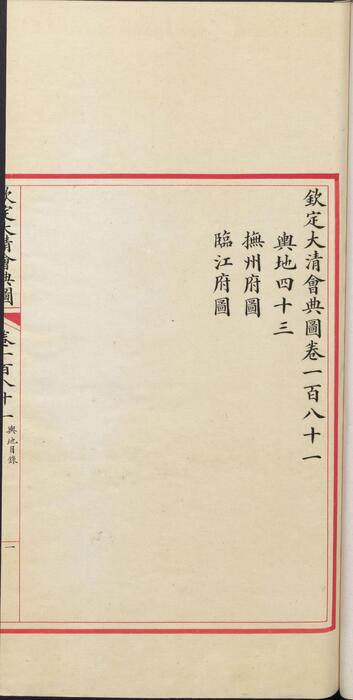 欽定大清會典圖卷一百八十一
輿地四十三
撫州府圖
臨江府圖
欽定大清會典圖
卷一百八十一
輿地目錄
一